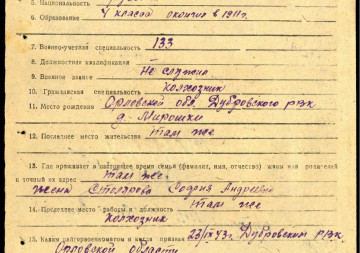 5. Национальность
6. Образование 4 класса окончил в 1911 г.
7. Военно-учетная специальность 133
8. Должностная квалификация
9. Военное звание Не служил
10. Гражданская специальность Колхозник
11. Место рождения Орловской обл. Дубровского р-на
д. Мирошки
12. Последнее место жительства Там же
13. Где проживает в настоящее время семья (фамилия, имя, отчество) жены или родителей
и точный их адрес Там же
Жена Столярова София Андреевна
14. Последнее место работы и должность Там же
Колхозник
15. Каким райгорвоенкоматом и когда призван 23/IX 43 г. Дубровским РВК.
Орловской области